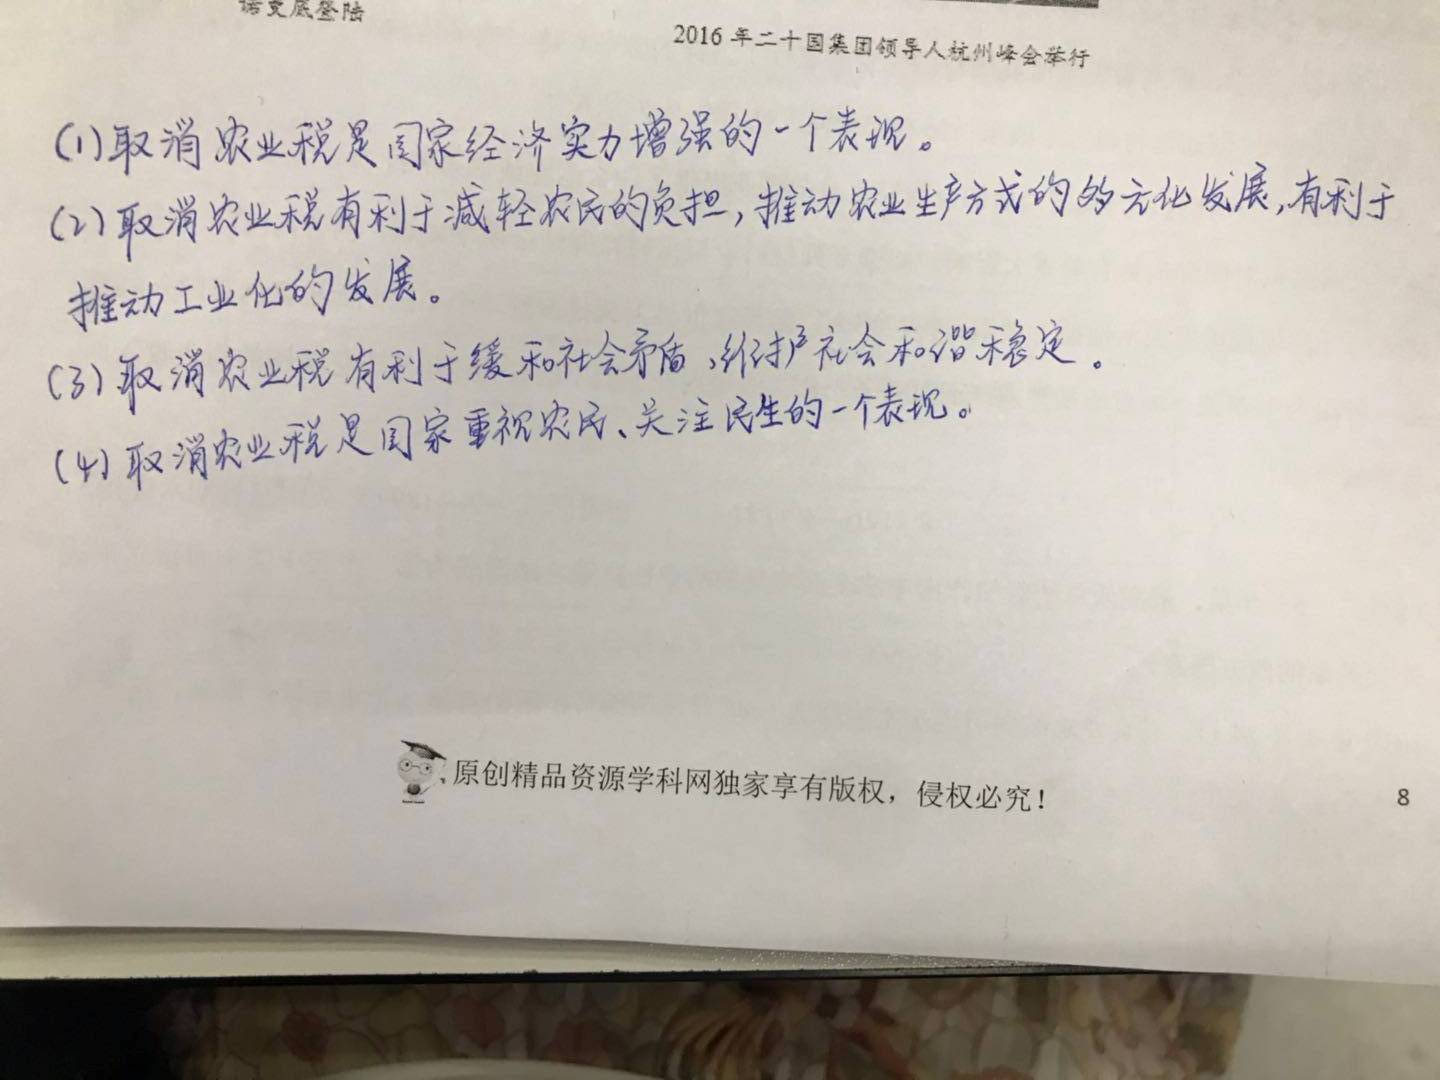 诺曼底登陆
2016 年二十国集团领导人杭州峰会举行
(1)取消农业税是国家经济实力增强的一个表现。
(2)取消农业税有利于减轻农民的负担,推动农业生产方式的多元化发展,有利于
推动工业化的发展。
(3)取消农业税有利于缓和社会矛盾,维护社会和谐稳定。
(4)取消农业税是国家重视农民、关注民生的一个表现。
原创精品资源学科网独家享有版权，侵权必究！
8